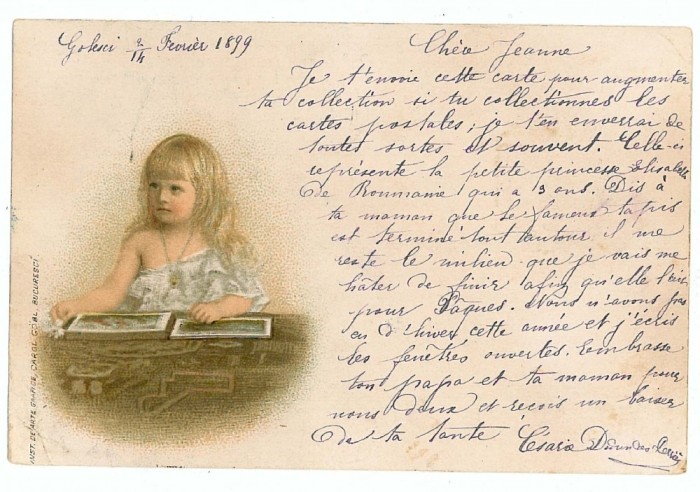 Golesci 2/14 Fevrièr 1899
Chère Jeanne
Je t'envoie cette carte pour augmenter
ta collection si tu collectionnes les
cartes postales; je t'en enverrai de
toutes sortes et souvent. Celle-ci
représente la petite princesse Elisabeth
de Roumanie qui a 3 ans. Dis à
ta maman que le fameux tapis
est terminé tout autour il me
reste le milieu que je vais me
hâter de finir afin qu'elle l'aie
pour Pâques. Nous n'avons pas
eu d'hiver cette année et j'écris
les fenêtres ouvertes. Embrasse
ton papa et ta maman pour
nous deux et reçois un baiser
de ta tante Césarie
INST. DE ARTE GRAFICE, CAROL GÖBL, BUCURESCĬ